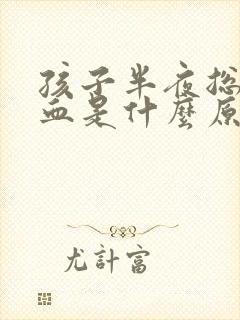 孩子半夜总
血是什麼原
尤計富